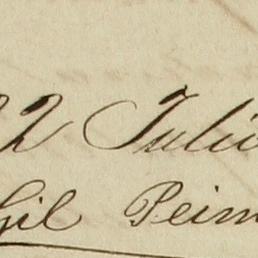 22 Juliu
Gil Peim